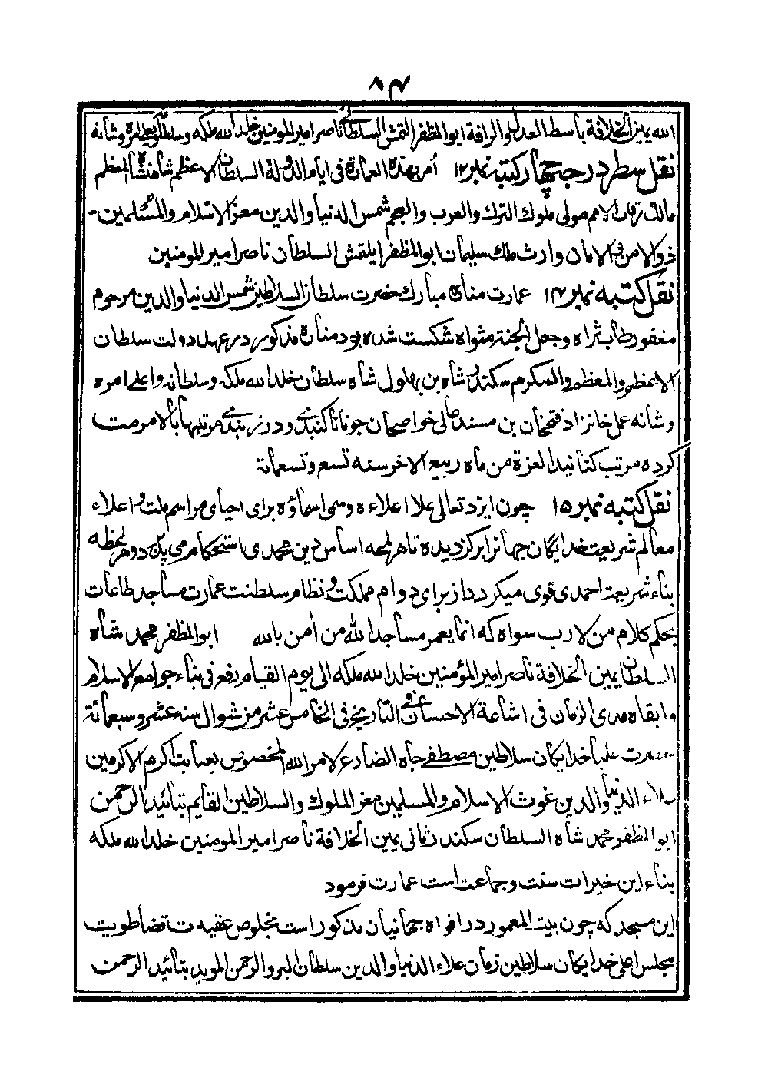 ۸۴
الله یمین الخلافة باسط العدل والرافة ابوالمظفر التمش السلطانی ناصر امیر المومنین خلد الله ملکه وسلطانه واعلی امره وشانه
نقل سطر درجه چهار کتبه نمبر ۱۲ امر بهذه العمارة فی ایام الدولة السلطان الاعظم شاهنشاه المعظم
مالک رقاب الامم مولی ملوک الترک والعرب والعجم شمس الدنیا والدین معز الاسلام والمسلمین-
ذوالامن والامان وارث ملک سلیمان ابوالمظفر ایلتمش السلطان ناصر امیر المومنین
نقل کتبه نمبر ۱۴ عمارت مناره مبارک حضرت سلطان السلاطین شمس الدنیا والدین مرحوم
مغفور طاب ثراه وجعل الجنة مثواه شکست شده بود مناره مذکور در عهد دولت سلطان
الاعظم والمعظم والمکرم سکندر شاه بن بهلول شاه سلطان خلد الله ملکه وسلطانه واعلی امره
وشانه عمل خانزاد فتحخان بن مسند عالی خواصخان جونا تاکندی ودرز بندی مرتبها بالا مرمت
کرده مرتب کنانید الغرة من ماه ربیع الاخر سنه تسع وتسعمائة
نقل کتبه نمبر ۱۵ چون ایزد تعالی علا اعلاءه وسمی اسماؤه برای احیای مراسم ملت واعلاء
معالم شریعت خدایگان جهانرا برگزیده تا هر لمحه اساس دین محمدی استحکام می پذیرد وهر لحظه
بناء شریعت احمدی قوی میگردد از برای دوام مملکت ونظام سلطنت عمارت مساجد طاعات
بحکم کلام من لارب سواه که انما یعمر مساجد الله من أمن بالله ابوالمظفر محمد شاه
السلطان یمین الخلافة ناصر امیر المؤمنین خلد الله ملکه الی یوم القیام رفع فی بناء جوامع الاسلام
وابقاه مدی الزمان فی اشاعة الاحسان فی التاریخ فی الخامس عشر من شوال سنه عشر وسبعمائة
حضرت علیا خدایکان سلاطین مصطفی جاه لامر الله المخصوص بعنایت اکرم الاکرمین
علاء الدنیا والدین غوث الاسلام والمسلمین معز الملوک والسلاطین القایم بتائید الرحمن
ابوالمظفر محمد شاه السلطان سکندر ثانی یمین الخلافة ناصر امیر المومنین خلد الله ملکه
بناء این خیرات سنت وجماعت است عمارت فرمود
این مسجد که چون بیت المعمور در افواه جهانیان مذکور است بخلوص عقیدت طویت
مجلس اعلی خدایکان سلاطین زمان علاء الدنیا والدین سلطان البر والرحمن الموید بتائید الرحمن